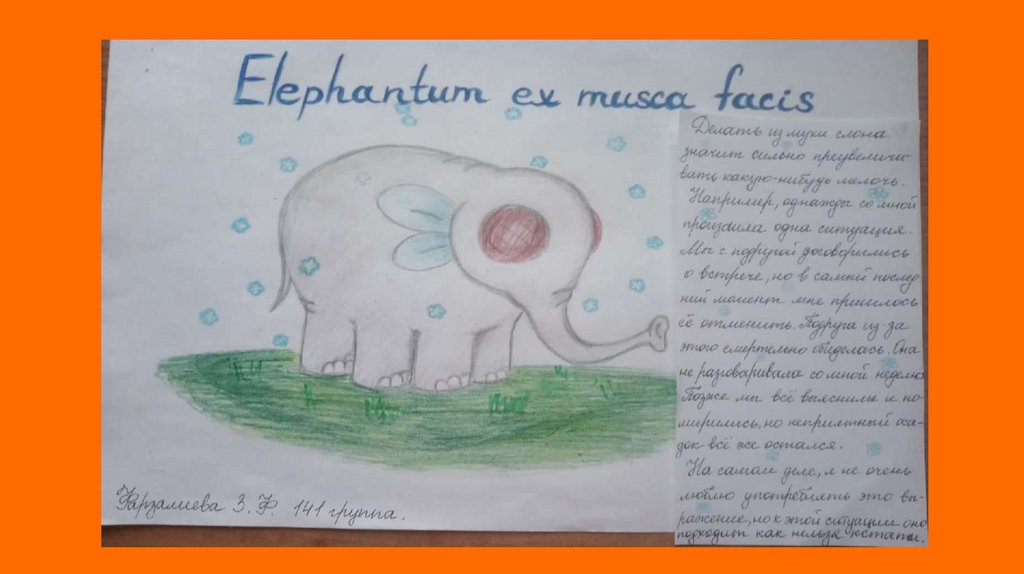 Elephantum ex musca facis
Делать из мухи слона
значит сильно преувеличи-
вать какую-нибудь мелочь.
Например, однажды со мной
произошла одна ситуация.
Мы с подругой договорились
о встрече, но в самый послед
ний момент мне пришлось
её отменить. Подруга из-за
этого смертельно обиделась. Она
не разговаривала со мной неделю
Позже мы всё выяснили и по-
мирились, но неприятный оса-
док всё же остался.
На самом деле, я не очень
люблю употреблять это вы-
ражение, но к этой ситуации оно
подходит как нельзя кстати.
Фарзалиева З. Ф. 141 группа.